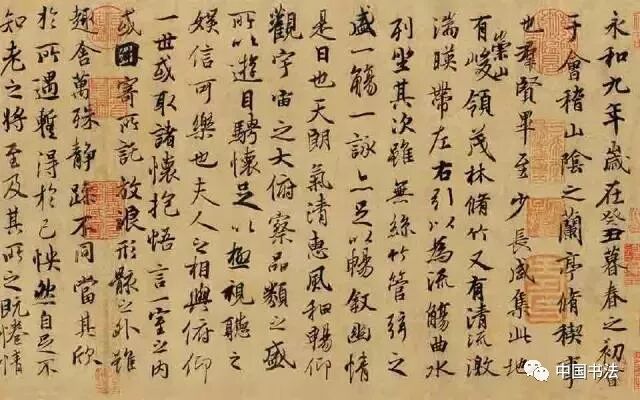 永和九年歲在癸丑暮春之初會
于會稽山陰之蘭亭脩稧事
也羣賢畢至少長咸集此地
有崇山峻領茂林脩竹又有清流激
湍暎帶左右引以為流觴曲水
列坐其次雖無絲竹管弦之
盛一觴一詠亦足以暢敘幽情
是日也天朗氣清惠風和暢仰
觀宇宙之大俯察品類之盛
所以遊目騁懷足以極視聽之
娛信可樂也夫人之相與俯仰
一世或取諸懷抱悟言一室之內
或因寄所託放浪形骸之外雖
趣舍萬殊靜躁不同當其欣
於所遇蹔得於己怏然自足不
知老之將至及其所之既惓情
中国书法